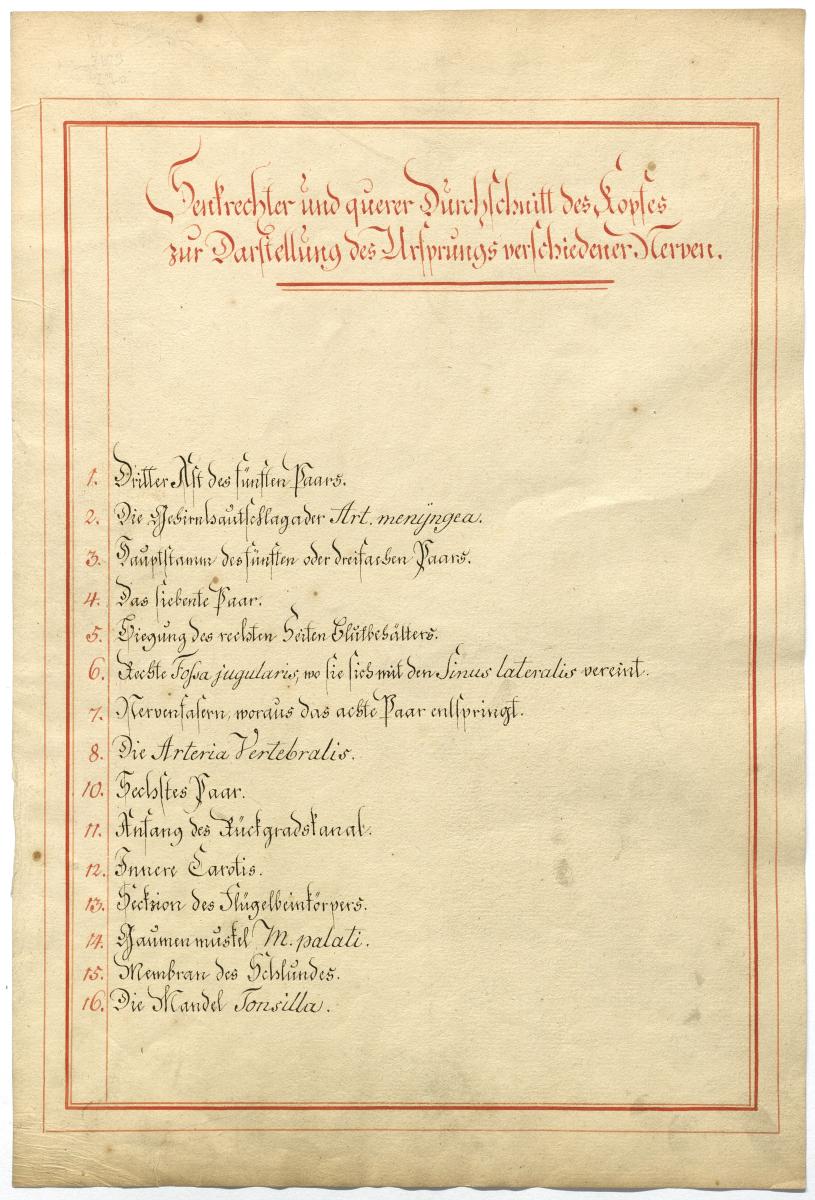 Senkrechter und querer Durchschnitt des Kopfes
zur Darstellung des Ursprungs verschiedener Nerven.
1. Dritter Ast des fünften Paars.
2. Die Gehirnhautschlagader Art. menÿngea.
3. Hauptstamm des fünften oder dreifachen Paars.
4. Das siebente Paar.
5. Biegung des rechten Seiten Blutbehälters.
6. Rechte Fossa jugularis, wo sie sich mit den Sinus lateralis vereint.
7. Nervenfasern, woraus das achte Paar entspringt.
8. Die Arteria Vertebralis.
10. Sechstes Paar.
11. Anfang des Rückgradskanal.
12. Innere Carotis.
13. Secktion des Flügelbeinkörpers.
14. Gaumenmuskel M. palati.
15. Membran des Schlundes.
16. Die Mandel Tonsilla.